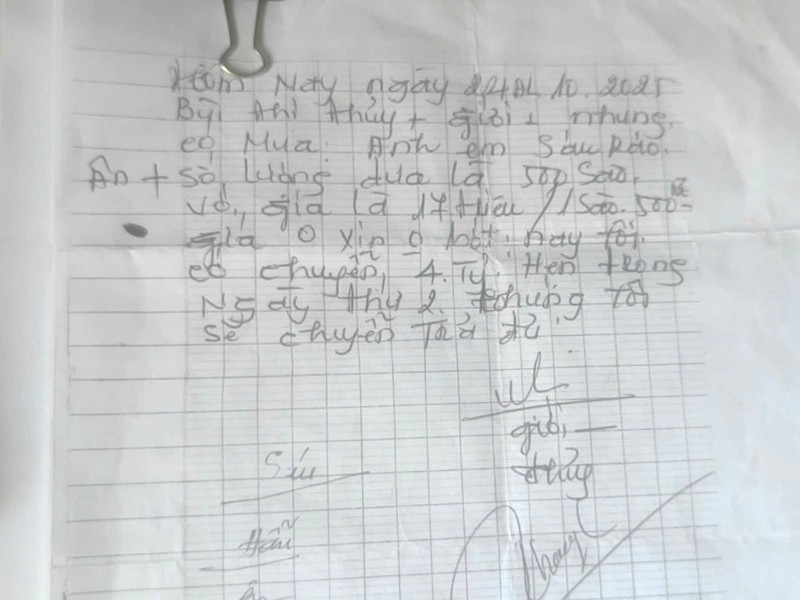 Hôm Nay ngày 10.2025
Bùi thị thủy + giời + nhung.
có Mua. Anh em Sáu Ráo.
Ân + số lượng dưa là 500 Sào.
với, giá là 17 triệu / 1 Sào. 500
giá 0 xin 0 bớt. nay tôi.
có chuyển, 4. Tỷ. Hẹn trong
Ngày thứ 2. chúng tôi
sẽ chuyển Trả đủ.
giời
Sáu
thủy
Hầu